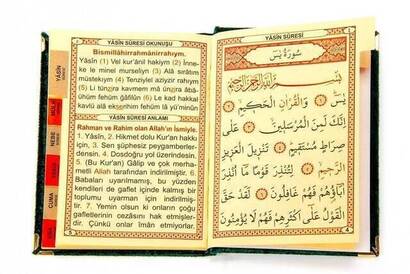 YÂSÎN SÛRESİ OKUNUŞU
Bismillâhirrahmânirrahîym.
Yâsîn (1) Vel kur'ânil hakiym (2) İnne-
ke le minel murseliyn (3) Alâ sırâtın
müstekıym (4) Tenziylel aziyzir rahiym
(5) Li tünzira kavmen mâ ünzira âbâ-
ühüm fehüm ğâfilûn (6) Le kad hakkal
kavlü alâ ekserihim fehüm lâ yü'minûn (7)
YÂSÎN SÛRESİ ANLAMI
Rahman ve Rahim olan Allah'ın İsmiyle.
1. Yâsîn, 2. Hikmet dolu Kur'an hakkı
için, 3. Sen şüphesiz peygamberler-
densin. 4. Dosdoğru yol üzerindesin.
5. (Bu Kur'an) Gâlip ve çok merha-
metli Allah tarafından indirilmiştir. 6.
Babaları uyarılmamış, bu yüzden
kendileri de gaflet içinde kalmış bir
toplumu uyarman için indirilmiş-
tir. 7. Yemin olsun ki onların çoğu
gafletlerinin cezasını hak etmişler-
dir. Çünkü onlar îman etmiyorlar.
YÂSÎN SÛRESİ
سُورَةُ يٰسٓ
بِسْمِ اللّٰهِ الرَّحْمٰنِ الرَّحِيمِ
يٰسٓ ﴿١﴾ وَالْقُرْاٰنِ الْحَكِيمِ ﴿٢﴾
اِنَّكَ لَمِنَ الْمُرْسَلِينَ ﴿٣﴾ عَلٰى
صِرَاطٍ مُسْتَقِيمٍ ﴿٤﴾ تَنْزِيلَ الْعَزِيزِ
الرَّحِيمِ ﴿٥﴾ لِتُنْذِرَ قَوْمًا مَٓا اُنْذِرَ
اٰبَٓاؤُهُمْ فَهُمْ غَافِلُونَ ﴿٦﴾ لَقَدْ حَقَّ
الْقَوْلُ عَلٰٓى اَكْثَرِهِمْ فَهُمْ لَا يُؤْمِنُونَ
4
YÂSÎN
MÜLK
NEBE
CUMA